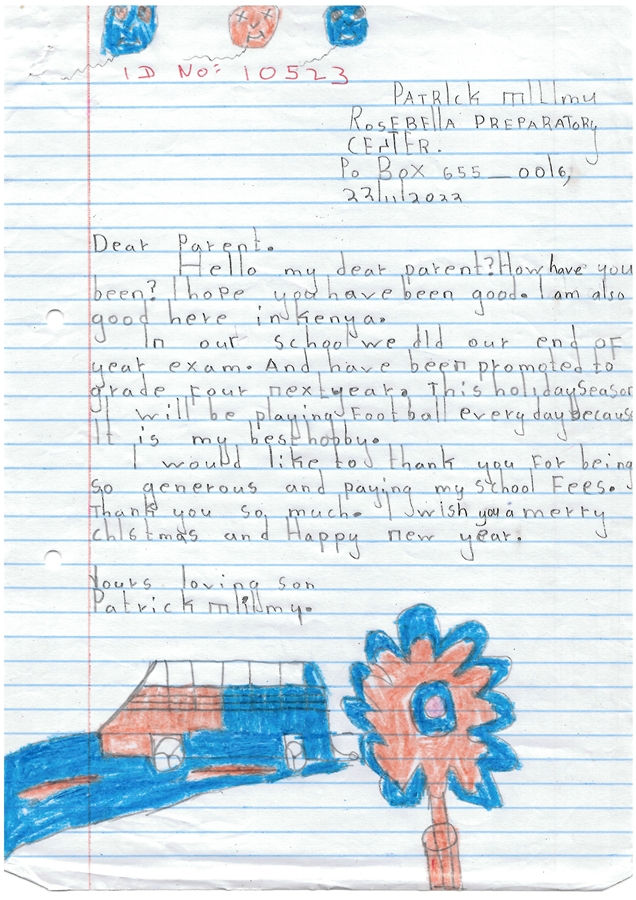 ID No: 10523
PATRICK mIllmy
ROSEBELLA PREPARATORY
CENTER.
Po Box 655_0016,
22/11/2022
Dear Parent.
Hello my dear parent? How have you
been? I hope you have been good. I am also
good here in Kenya.
In our school we did our end of
year exam. And have been promoted to
grade four next year. This holiday season
I will be playing football every day because
It is my best hobby.
I would like to thank you for being
so generous and paying my school Fees.
Thank you so much. I wish you a merry
chistmas and Happy new year.
Yours loving son
Patrick millmy.